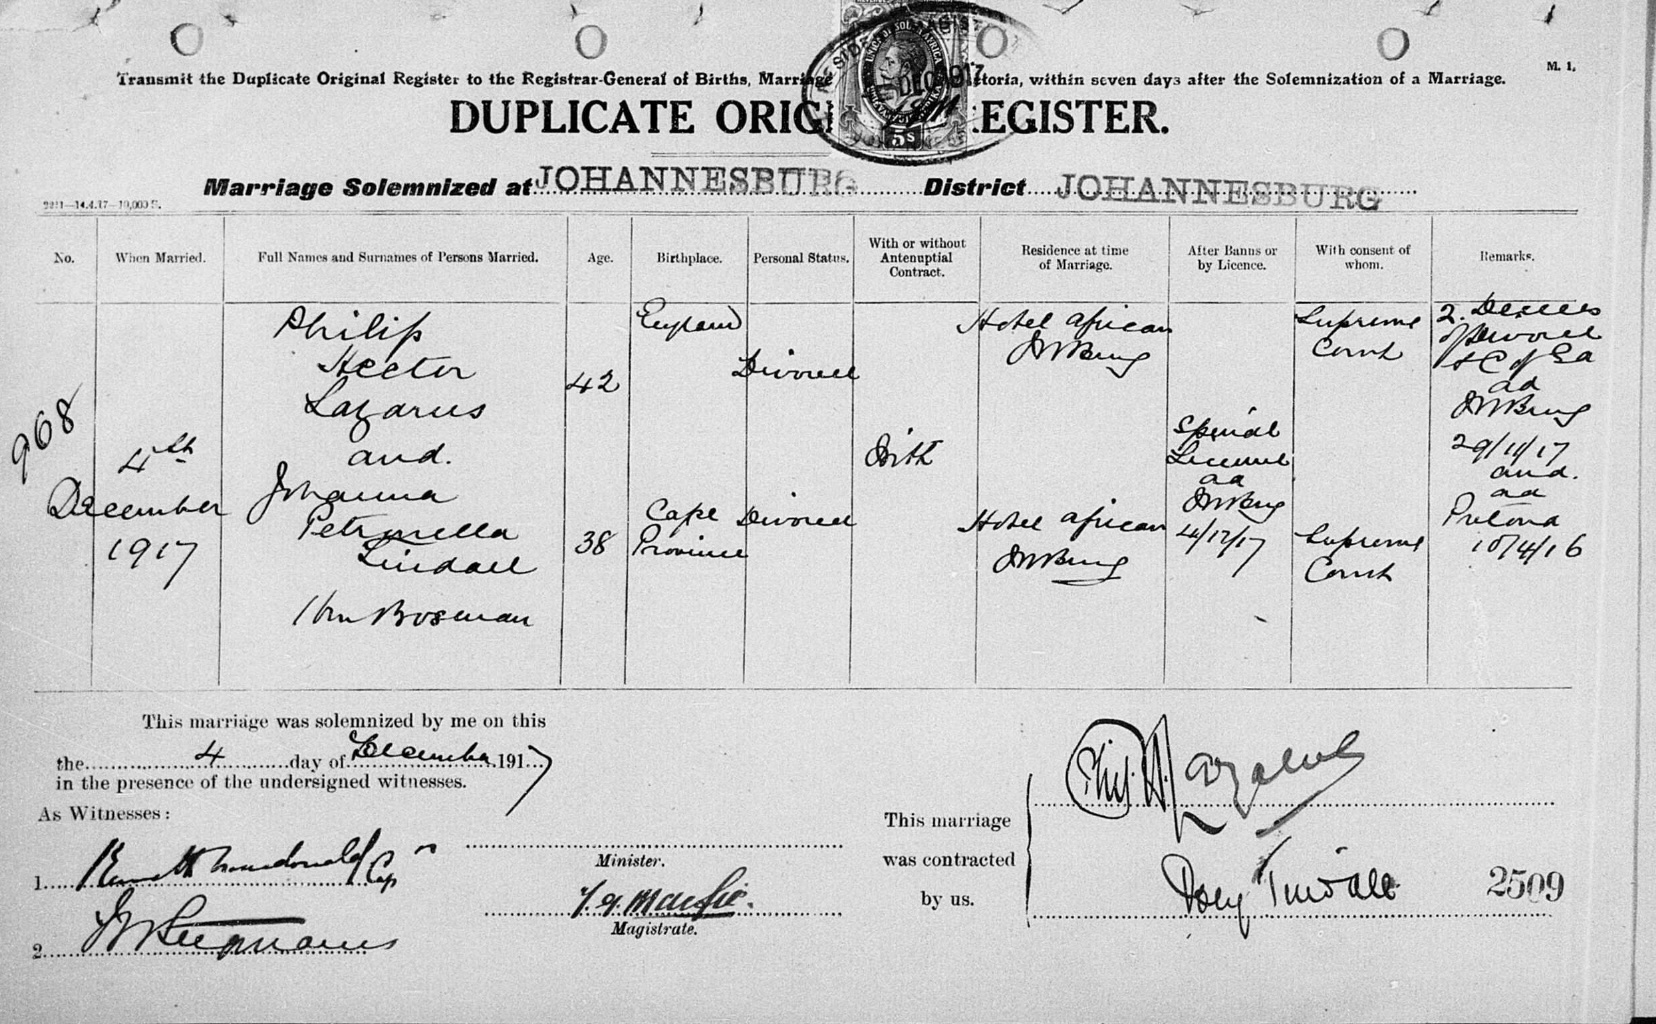 Transmit the Duplicate Original Register to the Registrar-General of Births, Marriage toria, within seven days after the Solemnization of a Marriage.
M. 1.
DUPLICATE ORIG EGISTER.
DEC 1917
5s
Marriage Solemnized at JOHANNESBURG District JOHANNESBURG
2211—14.4.17—10,000 S.
No.
When Married.
Full Names and Surnames of Persons Married.
Age.
Birthplace.
Personal Status.
With or without
Antenuptial
Contract.
Residence at time
of Marriage.
After Banns or
by Licence.
With consent of
whom.
Remarks.
968
4th
December
1917
Philip
Hector
Lazarus
and.
Johanna
Petronella
Tindall
Bosman
42
38
England
Cape
Province
Divorced
Divorced
With
Hotel African
JHBurg
Hotel African
JHBurg
Special
Licence
dd
JHBurg
4/12/17
Supreme
Court
Supreme
Court
2. Decrees
of Divorce
dd
JHBurg
29/11/17
and.
dd
Pretoria
10/4/16
This marriage was solemnized by me on this
the 4 day of December 1917
in the presence of the undersigned witnesses.
As Witnesses:
1. Macdonald Cap
2.
Minister.
Magistrate.
This marriage
was contracted
by us.
Phil. H. Lazarus
Tindall
2509